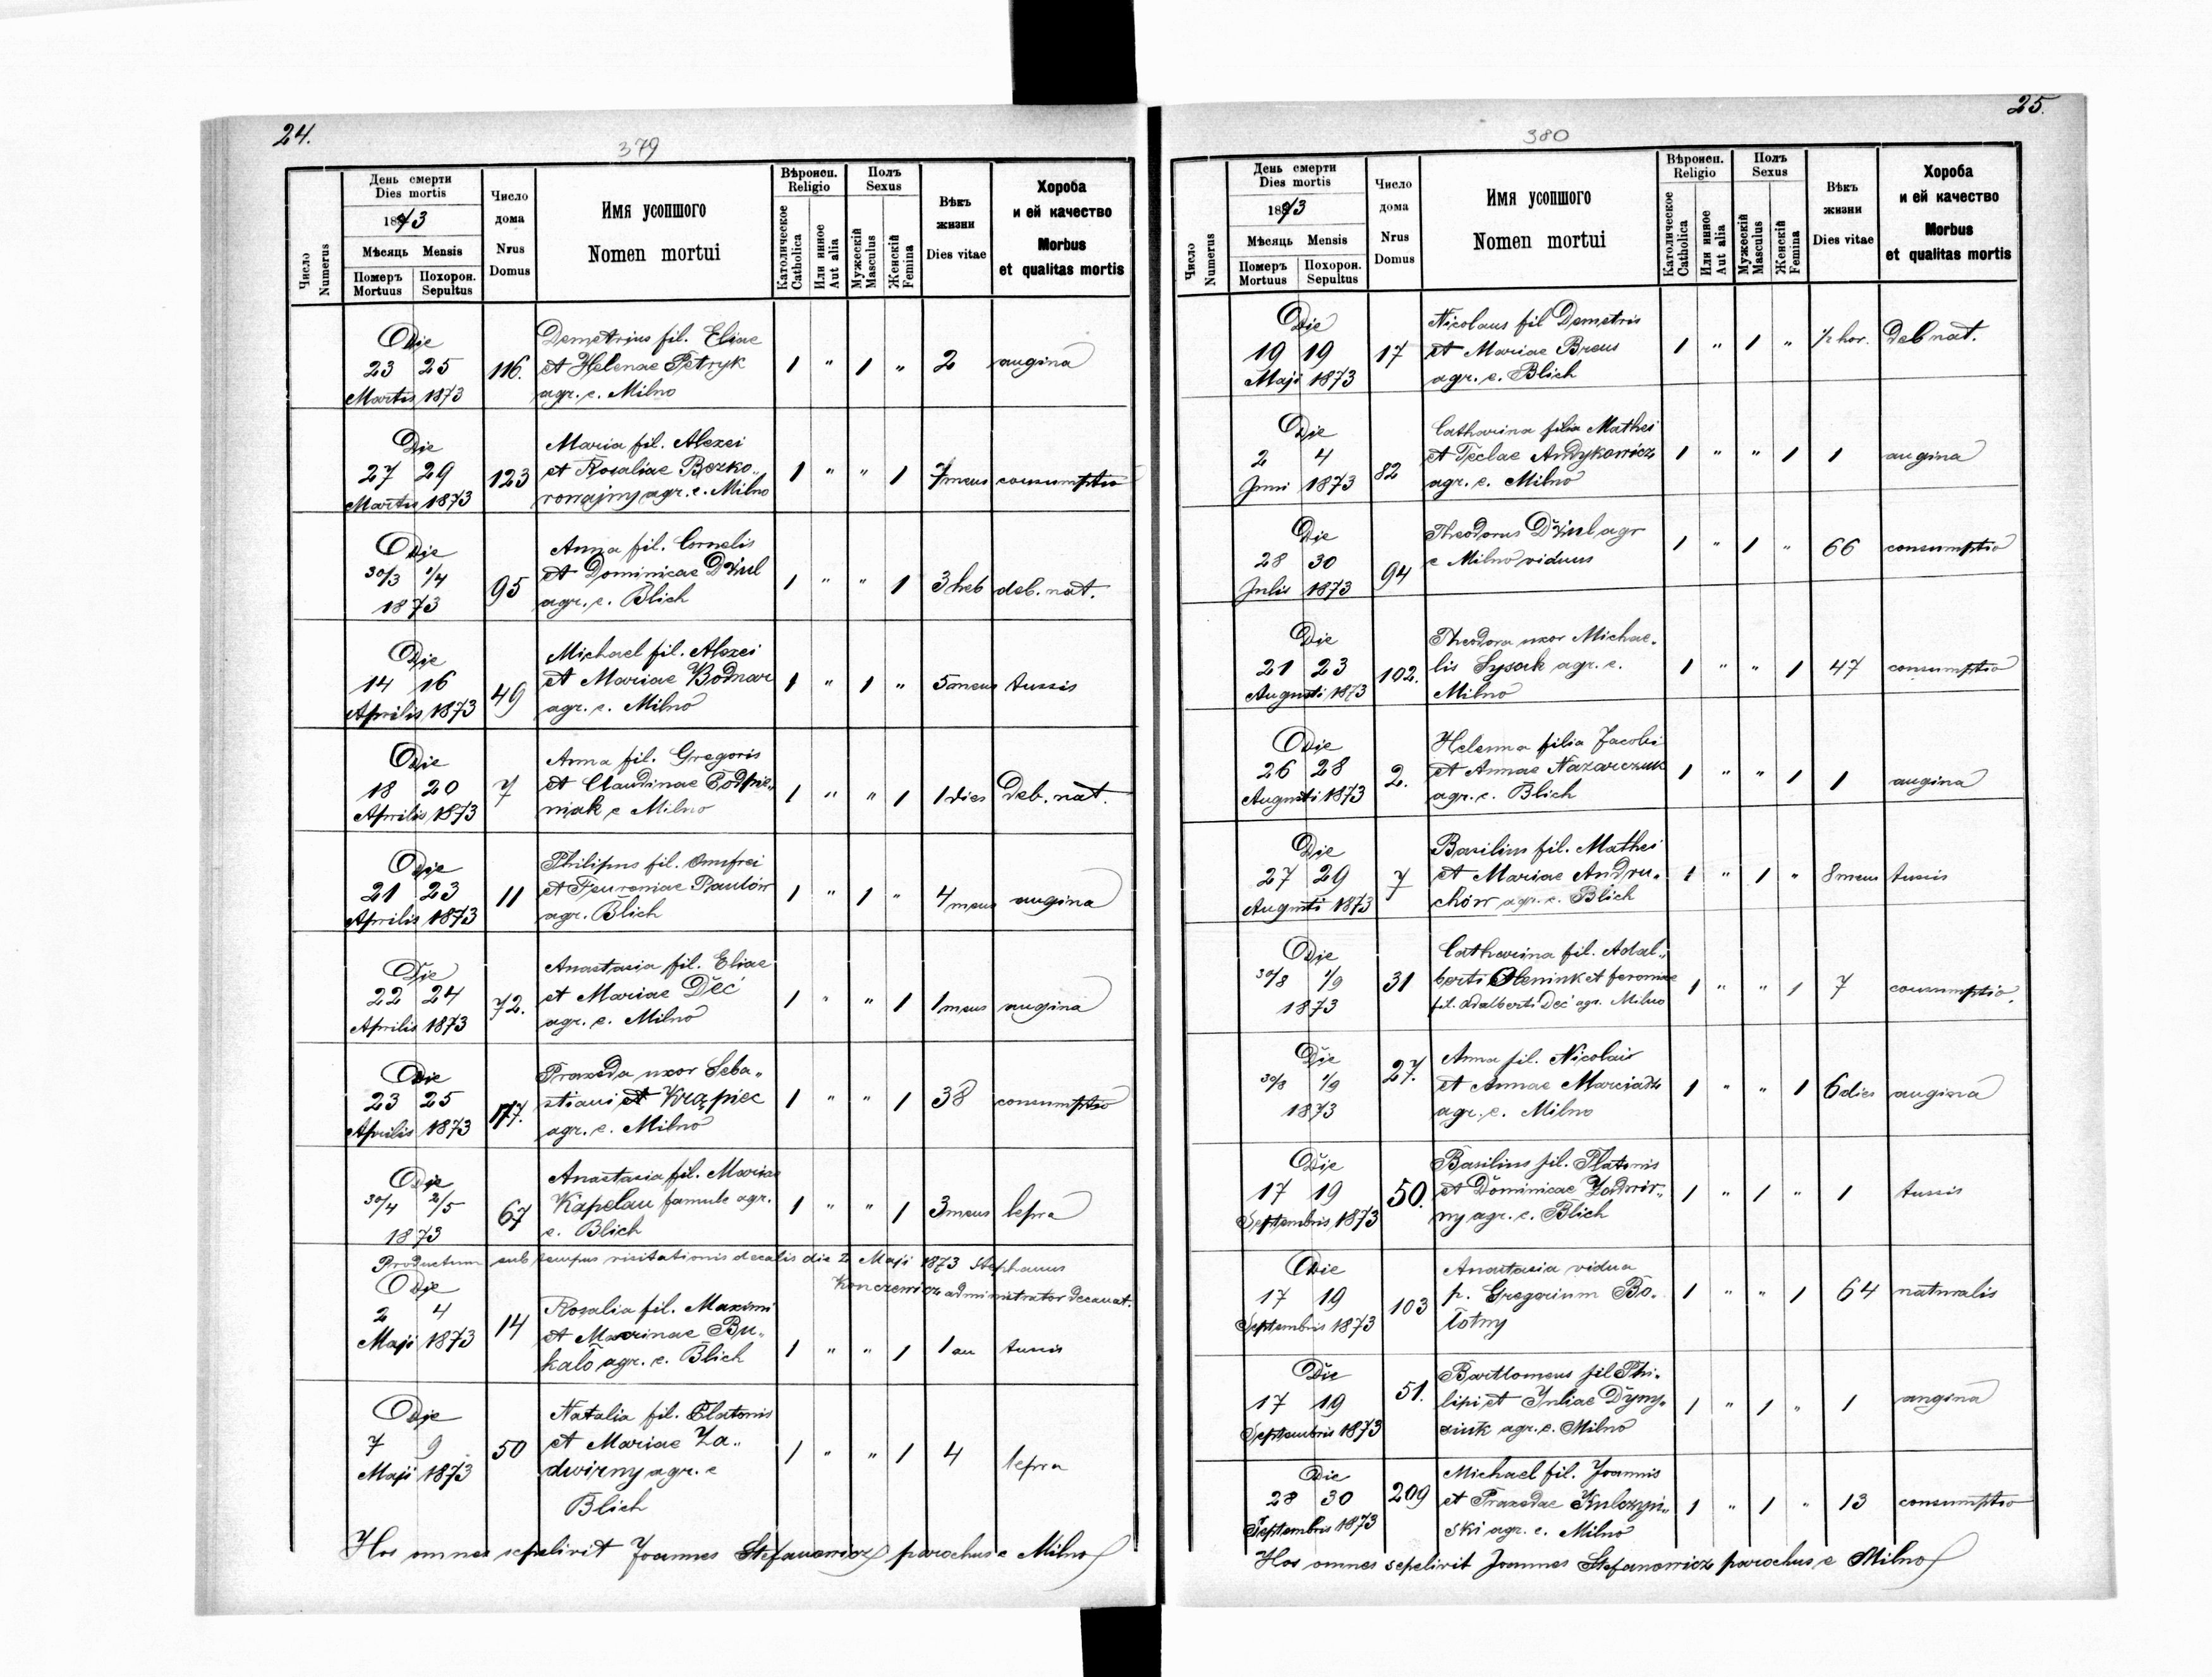 24.
379
Число Numerus
День смерти
Dies mortis
1873
Мѣсяць Mensis
Померъ Mortuus
Похорон. Sepultus
Число дома
Nrus Domus
Имя усопшого
Nomen mortui
Вѣроисп. Religio
Католическое Catholica
Или инное Aut alia
Полъ Sexus
Мужескій Masculus
Женскій Femina
Вѣкъ жизни
Dies vitae
Хороба и ей качество
Morbus et qualitas mortis
Die
Demetrius fil. Eliae
23 25 116. et Helenae Petryk 1 " 1 " 2 angina
Martis 1873 agr. e. Milno
Die
Maria fil. Alexei
27 29 123 et Rosaliae Bezko„ 1 " " 1 7 mens consumptio
Martis 1873 rowajny agr. e. Milno
Die
Anna fil. Cornelis
30/3 1/4 95 et Dominicae Dziul 1 " " 1 3 heb deb. nat.
1873 agr. e. Blich
Die
Michael fil. Alexei
14 16 49 et Mariae Bodnar 1 " 1 " 5 mens tussis
Aprilis 1873 agr. e. Milno
Die
Anna fil. Gregoris
18 20 7 et Claudinae Podpie„ 1 " " 1 1 dies Deb. nat.
Aprilis 1873 niak e Milno
Die
Philipus fil. Onufrei
21 23 11 et Feuroniae Pawlów 1 " 1 " 4 mens angina
Aprilis 1873 agr. Blich
Die
Anastasia fil. Eliae
22 24 72. et Mariae Deć 1 " " 1 1 mens angina
Aprilis 1873 agr. e. Milno
Die
Praxeda uxor Seba„
23 25 177. stiani et Krąpiec 1 " " 1 38 consumptio
Aprilis 1873 agr. e. Milno
Die
Anastasia fil. Mariae
30/4 2/5 67 Kapelan famule agr. 1 " " 1 3 mens lepra
1873 e. Blich
Productum sub tempus visitationis decalis die 2 Maji 1873 Stephanus
Konczewicz administrator decanat.
Die
2 4 14 Rosalia fil. Maximi
Maji 1873 et Marinae Bu„
kało agr. e. Blich 1 " " 1 1 an tussis
Die
Natalia fil. Platonis
7 9 50 et Mariae Za„ 1 " " 1 4 lepra
Maji 1873 dwirny agr. e
Blich
Hos omnes sepelivit Joannes Stefanowicz parochus e Milno
25.
380
Число Numerus
День смерти
Dies mortis
1873
Мѣсяць Mensis
Померъ Mortuus
Похорон. Sepultus
Число дома
Nrus Domus
Имя усопшого
Nomen mortui
Вѣроисп. Religio
Католическое Catholica
Или инное Aut alia
Полъ Sexus
Мужескій Masculus
Женскій Femina
Вѣкъ жизни
Dies vitae
Хороба и ей качество
Morbus et qualitas mortis
Die
Nicolaus fil Demetris
19 19 17 et Mariae Breus 1 " 1 " 1/2 hor. Deb nat.
Maji 1873 agr. e. Blich
Die
Catharina filia Mathei
2 4 82 et Teclae Andykowicz 1 " " 1 1 angina
Juni 1873 agr. e. Milno
Die
Theodorus Dziul agr
28 30 94 e Milno viduus 1 " 1 " 66 consumptio
Julis 1873
Die
Theodora uxor Michae„
21 23 102. lis Łysak agr. e. 1 " " 1 47 consumptio
Augusti 1873 Milno
Die
Helenna filia Jacobi
26 28 2. et Annae Nazarczuk 1 " " 1 1 angina
Augusti 1873 agr. e. Blich
Die
Basilius fil. Mathei
27 29 7 et Mariae Andru„ 1 " 1 " 8 mens tussis
Augusti 1873 chów agr. e. Blich
Die
Catharina fil. Adal„
30/8 1/9 31 berti Oleniuk et feroniae 1 " " 1 7 consumptio.
1873 fil. Adalberti Deć agr. Milno
Die
Anna fil. Nicolais
30/8 1/9 27. et Annae Marciadz 1 " " 1 6 dies angina
1873 agr. e. Milno
Die
Basilius fil. Platonis
17 19 50. et Dominicae Zadwir„ 1 " 1 " 1 tussis
Septembris 1873 ny agr. e. Blich
Die
Anastasia vidua
17 19 103 p. Gregorium Bo„ 1 " " 1 64 naturalis
Septembris 1873 łotny
Die
Bartlomeus fil Phi„
17 19 51. lipi et Juliae Dymy„ 1 " 1 " 1 angina
Septembris 1873 siuk agr. e. Milno
Die
Michael fil. Joannis
28 30 209 et Praxedae Kulczyń„ 1 " 1 " 13 consumptio
Septembris 1873 ski agr. e. Milno
Hos omnes sepelivit Joannes Stefanowicz parochus e Milno